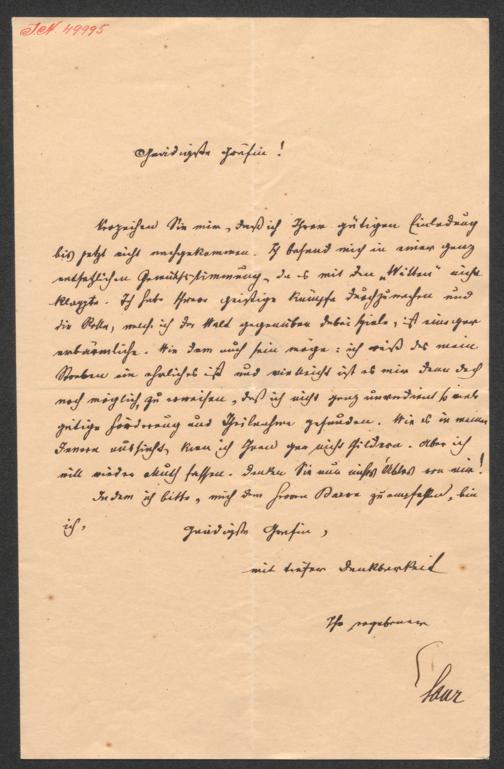 I.N. 49995
Gnädigste Gräfin!
Verzeihen Sie mir, daß ich Ihrer gütigen Einladung
bis jetzt nicht nachgekommen. Ich befand mich in einer ganz
entsetzlichen Gemüthsstimmung, da es mit den „Witten" nicht
klappte. Ich habe schwere geistige Kämpfe durchzumachen und
die Rolle, welche ich der Welt gegenüber dabei spiele, ist eine gar
erbärmliche. Wie dem auch sein möge: ich weiß daß mein
Streben ein ehrliches ist und vielleicht ist es mir denn doch
noch möglich, zu erweisen, daß ich nicht ganz unverdient so viele
gütige Förderung und Theilnahme gefunden. Wie es in meinem
Innern aussieht, kann ich Ihnen gar nicht schildern. Aber ich
will wieder Muth fassen. Denken Sie nur nichts Übles von mir!
Indem ich bitte, mich dem Herrn zu empfehlen, bin
ich, gnädigste Gräfin,
mit tiefer Dankbarkeit
Ihr ergebener
Saar